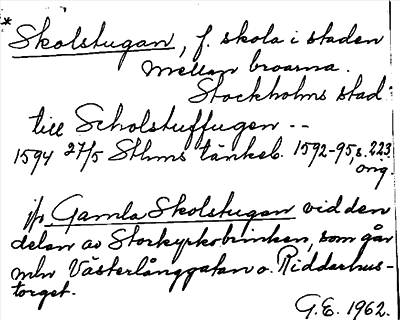 * Skolstugan, f. skola i staden
mellan broarna.
Stockholms stad.
till Scholstuffugen --
1594 27/5 Sthms tänkeb. 1592-95, s. 223
orig.
jfr Gamla Skolstugan vid den
delen av Storkyrkobrinken, som går
mln Västerlånggatan o. Riddarhus-
torget.
G.E. 1962.